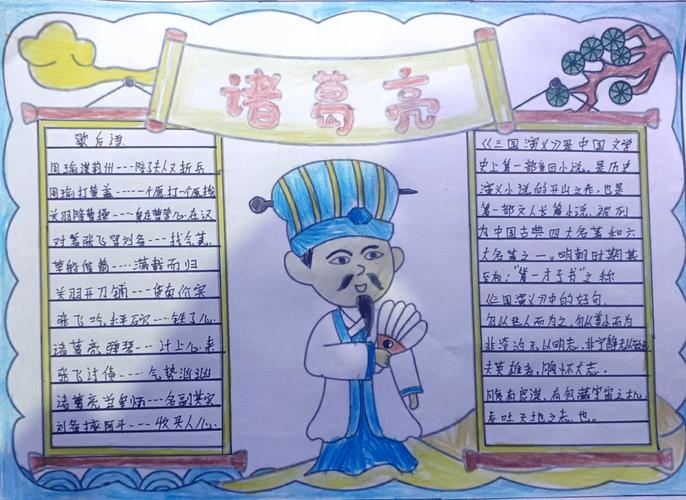 诸葛亮
歇后语
周瑜谋荆州---赔了夫人又折兵
周瑜打黄盖----一个愿打一个愿挨
关羽降曹操---身在曹营心在汉
对着张飞骂刘备---找气惹
草船借箭....满载而归
关羽开刀铺---货真价实
张飞吃秤砣---铁了心
诸葛亮弹琴---计上心来
张飞讨债----气势汹汹
诸葛亮当军师---名副其实
刘备摔阿斗---收买人心.
《三国演义》是中国文学
史上第一部章回小说,是历史
演义小说的开山之作,也是
第一部文人长篇小说,被列
为中国古典四大名著和六
大名著之一。明朝时期甚
至有:"第一才子书"之称
《三国演义》中的好句.
勿以恶小而为之,勿以善小而
非淡泊无以明志,非宁静无以致远
夫英雄者,胸怀大志,
腹有良谋,有包藏宇宙之机,
吞吐天地之志也。